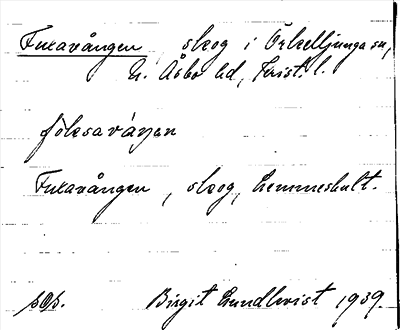 Fukavången, skog i Örkelljunga sn,
N. Åsbo hd, Krist. l.
Fukavången, skog, Lemmeshult.
Birgit Lundkvist 1939.